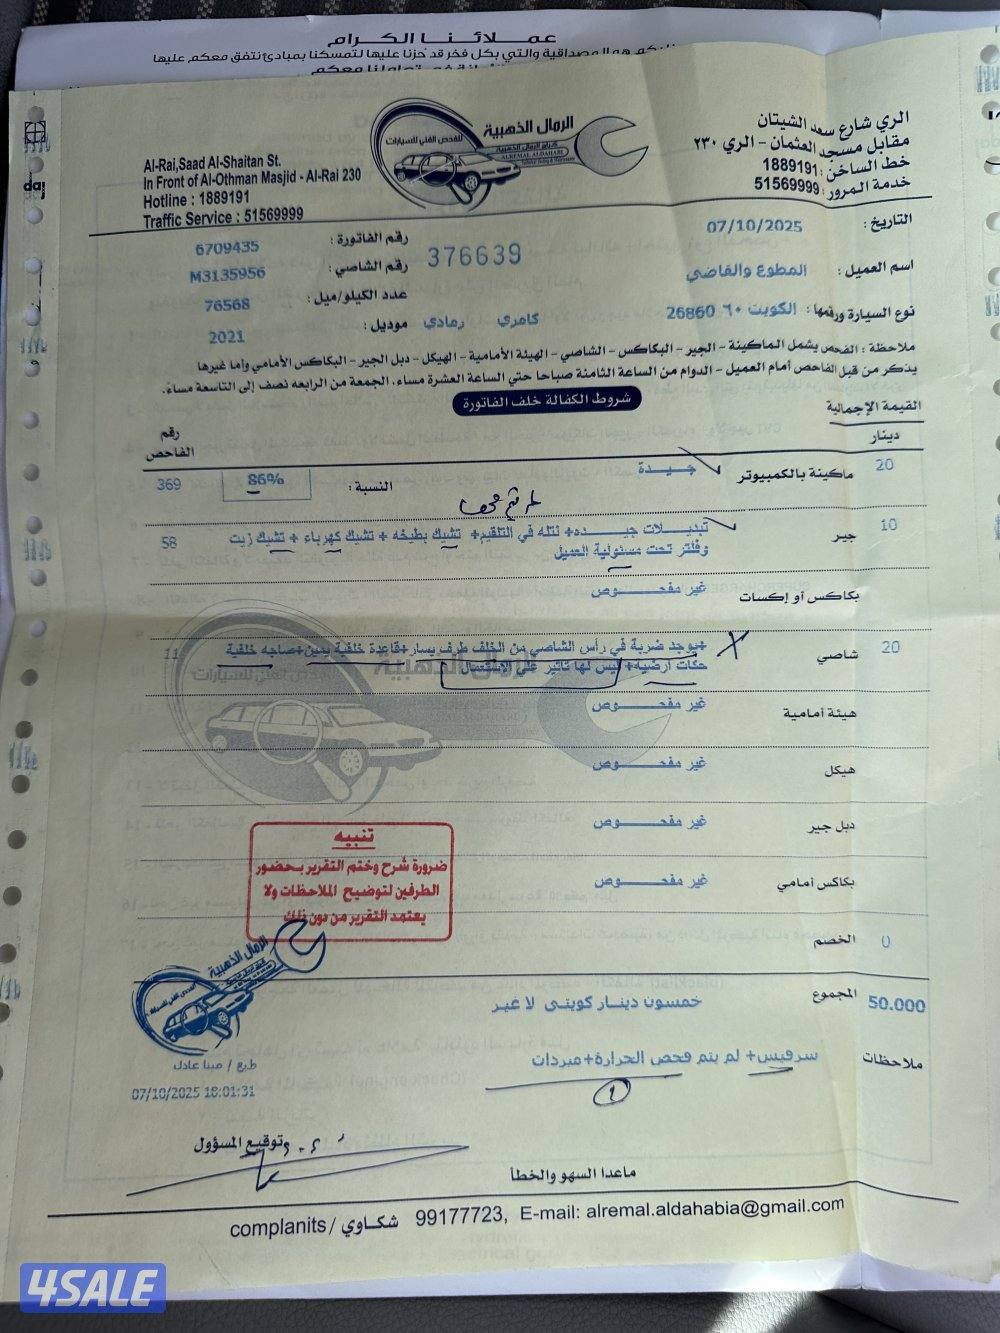 عملائنا الكرام
والتي بكل فخر قد حزنا عليها لتمسكنا بمبادئ نتفق معكم عليها
الري شارع سعد الشيتان
مقابل مسجد العثمان - الري ٢٣٠
خط الساخن : 1889191
خدمة المرور : 51569999
الرمال الذهبية
للفحص الفني للسيارات
Al-Rai,Saad Al-Shaitan St.
In Front of Al-Othman Masjid - Al-Rai 230
Hotline : 1889191
Traffic Service : 51569999
التاريخ : 07/10/2025
رقم الفاتورة : 6709435
376639
اسم العميل : المطوع والقاضي
رقم الشاصي : M3135956
عدد الكيلو/ميل : 76568
نوع السيارة ورقمها : الكويت ٦٠ 26860 كامري رمادي
موديل : 2021
ملاحظة : الفحص يشمل الماكينة - الجير - البكاكس - الشاصي - الهيئة الأمامية - الهيكل - دبل الجير - البكاكس الأمامي وأما غيرها
يذكر من قبل الفاحص أمام العميل - الدوام من الساعة الثامنة صباحا حتي الساعة العشرة مساء، الجمعة من الرابعه نصف إلى التاسعة مساء.
شروط الكفالة خلف الفاتورة
القيمة الإجمالية
دينار
رقم الفاحص
20 ماكينة بالكمبيوتر جيدة النسبة : 86% 369
10 جير تبديلات جيده+ نتله في التلقيم+ تشيك بطيخه + تشيك كهرباء + تشيك زيت 58
وفلتر تحت مسئولية العميل
بكاكس أو إكسات غير مفحوص
20 شاصي +يوجد ضربة في رأس الشاصي من الخلف طرف يسار+قاعدة خلفية يمين+صاجه خلفية 11
حكات ارضيه+ ليس لها تأثير علي الاستعمال
هيئة أمامية غير مفحوص
هيكل غير مفحوص
دبل جير غير مفحوص
بكاكس أمامي غير مفحوص
تنبيه
ضرورة شرح وختم التقرير بحضور
الطرفين لتوضيح الملاحظات ولا
يعتمد التقرير من دون ذلك
الخصم 0
المجموع 50.000 خمسون دينار كويتى لا غير
ملاحظات سرفيس+ لم يتم فحص الحرارة+مبردات
الرمال الذهبية
طبع / مينا عادل
07/10/2025 18:01:31
توقيع المسؤول
ماعدا السهو والخطأ
complanits / شكاوي 99177723, E-mail: alremal.aldahabia@gmail.com
4SALE